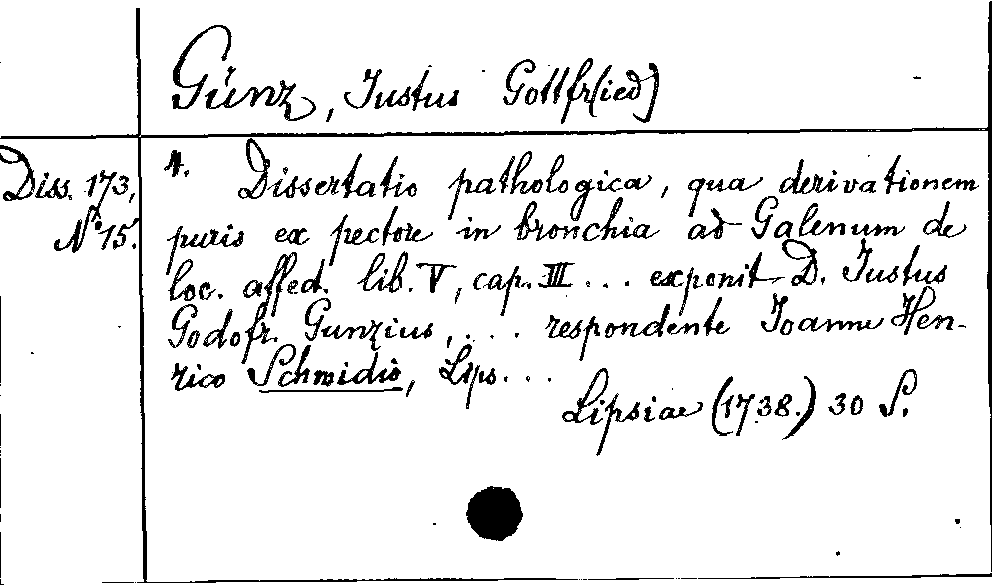 Günz, Justus Gottfr(ied)
Diss. 173,
No 15.
4. Dissertatio pathologica, qua derivationem
puris ex pectore in bronchia ad Galenum de
loc. affect. lib. V, cap. III ... exponit D. Justus
Godofr. Gunzius, ... respondente Joanne Hen-
rico Schmidio, Lips. ...
Lipsiae (1738.) 30 S.